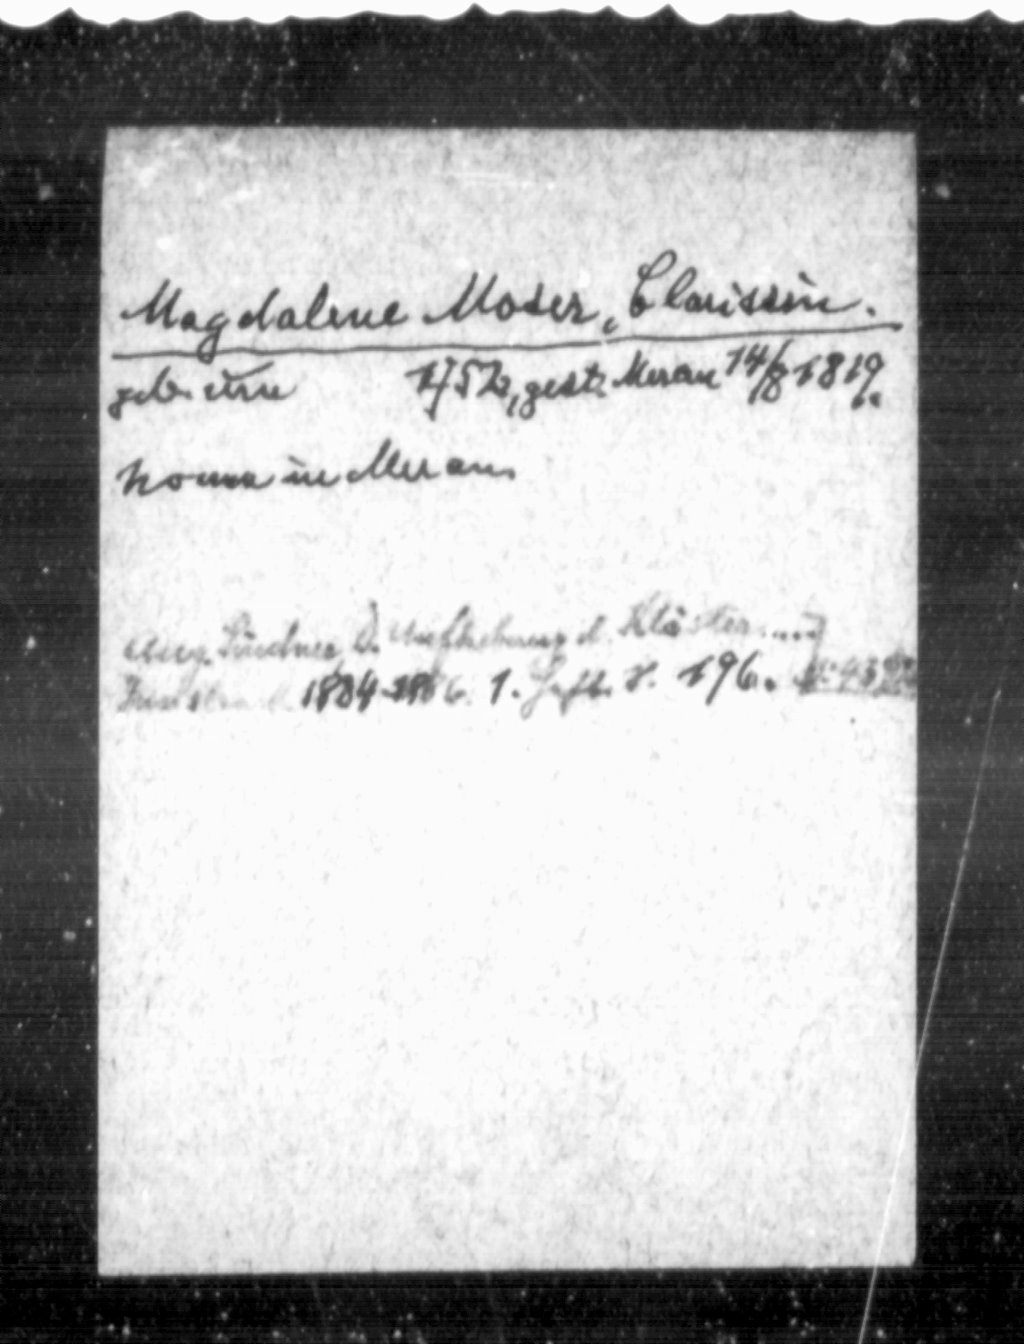 Magdalene Moser, Clarissin.
geb. um 1752, gest. Meran 14/8 1819.
Nonne in Meran.
Aug. Lindner, D. Aufhebung d. Klöster.....
1884-1886. 1. Heft. S. 196.